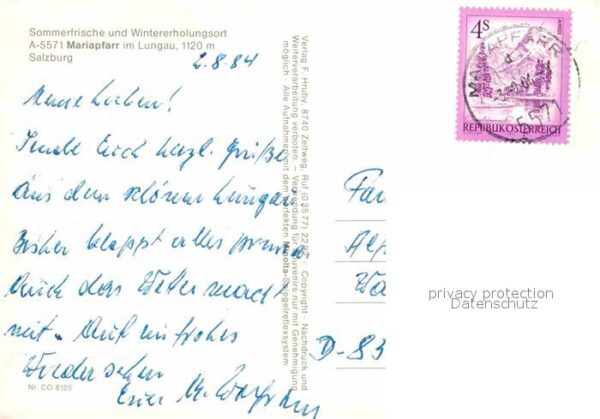 Sommerfrische und Wintererholungsort
A-5571 Mariapfarr im Lungau, 1120 m
Salzburg
2.8.84
Meine Lieben!
Sende Euch herzl. Grüße
Aus dem schönen Lungau
Bisher klappt alles prima
Auch das Wetter macht
mit. Auf ein frohes
Wiedersehen
Eure M.
Nr. CO 8125
Verlag F. Hruby, 8740 Zeltweg, Ruf (03577) 22 Copyright - Nachdruck und
Weiterverarbeitung verboten. - Verwendung für Souvenirs nur mit Genehmigung
möglich - Alle Aufnahmen mit dem perfekten Minolta-Spiegelreflexsystem
4S
REPUBLIK ÖSTERREICH
MARIAPFARR
5571
D-83
privacy protection
Datenschutz